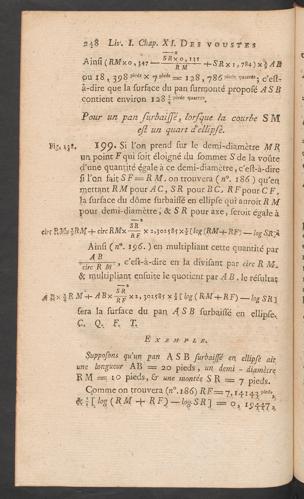 238 Liv. I. Chap. XI. DES VOUSTES
Ainsi (RM×0,347 — SR×0,131 / RM + SR×1,784)×½AB
ou 18,398 pieds × 7 pieds = 128,786 pieds quarrés; c'est-
à-dire que la surface du pan surmonté proposé ASB
contient environ 128 4/5 pieds quarrés.
Pour un pan surbaissé, lorsque la courbe SM
est un quart d'ellipse.
Fig. 138. 199. Si l'on prend sur le demi-diamètre MR
un point F qui soit éloigné du sommet S de la voûte
d'une quantité égale à ce demi-diamètre, c'est-à-dire
si l'on fait SF=RM, on trouvera (n°. 186) qu'en
mettant RM pour AC, SR pour BC, RF pour CF,
la surface du dôme surbaissé en ellipse qui auroit RM
pour demi-diamètre, & SR pour axe, seroit égale à
circ RM×½RM + circ RM× SR² / RF ×2,302585×½[log (RM+RF) — log SR].
Ainsi (n°. 196.) en multipliant cette quantité par
AB / circ RM, c'est-à-dire en la divisant par circ RM,
& multipliant ensuite le quotient par AB, le résultat
AB×½RM + AB× SR² / RF ×2,302585×½[log (RM+RF) — log SR]
sera la surface du pan ASB surbaissé en ellipse.
C. Q. F. T.
EXEMPLE.
Supposons qu'un pan ASB surbaissé en ellipse ait
une longueur AB = 20 pieds, un demi-diamètre
RM = 10 pieds, & une montée SR = 7 pieds.
Comme on trouvera (n°. 186) RF = 7,14143 pieds,
& ½[log (RM + RF) — log SR] = 0,19447 2